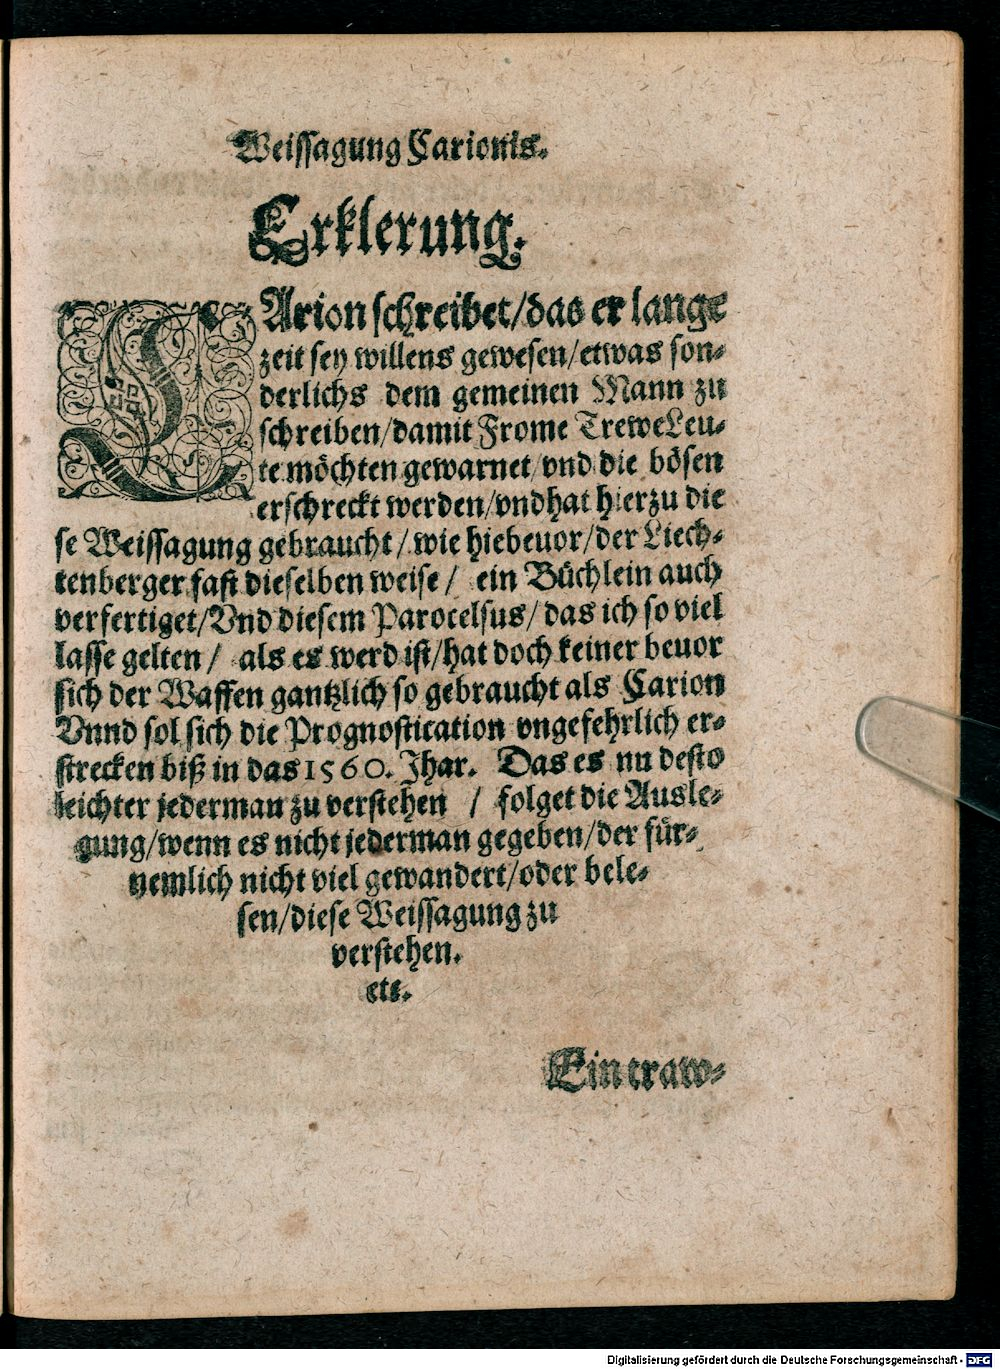 Weissagung Carionis.
Erklerung.
CArion schreibet/das er lange
zeit sey willens gewesen/etwas son-
derlichs dem gemeinen Mann zu
schreiben/damit Frome TreweLeu-
te möchten gewarnet/vnd die bösen
erschreckt werden/vndhat hierzu die
se Weissagung gebraucht/wie hiebeuor/der Liech-
tenberger fast dieselben weise/ ein Büchlein auch
verfertiget/Vnd diesem Parocelsus/das ich so viel
lasse gelten/ als es werd ist/hat doch keiner beuor
sich der Waffen gantzlich so gebraucht als Carion
Vnnd sol sich die Prognostication vngefehrlich er-
strecken biß in das 1560. Jhar. Das es nu desto
leichter jederman zu verstehen / folget die Ausle-
gung/wenn es nicht jederman gegeben/der für-
nemlich nicht viel gewandert/oder bele-
sen/diese Weissagung zu
verstehen.
etc.
Ein traw-
Digitalisierung gefördert durch die Deutsche Forschungsgemeinschaft - DFG